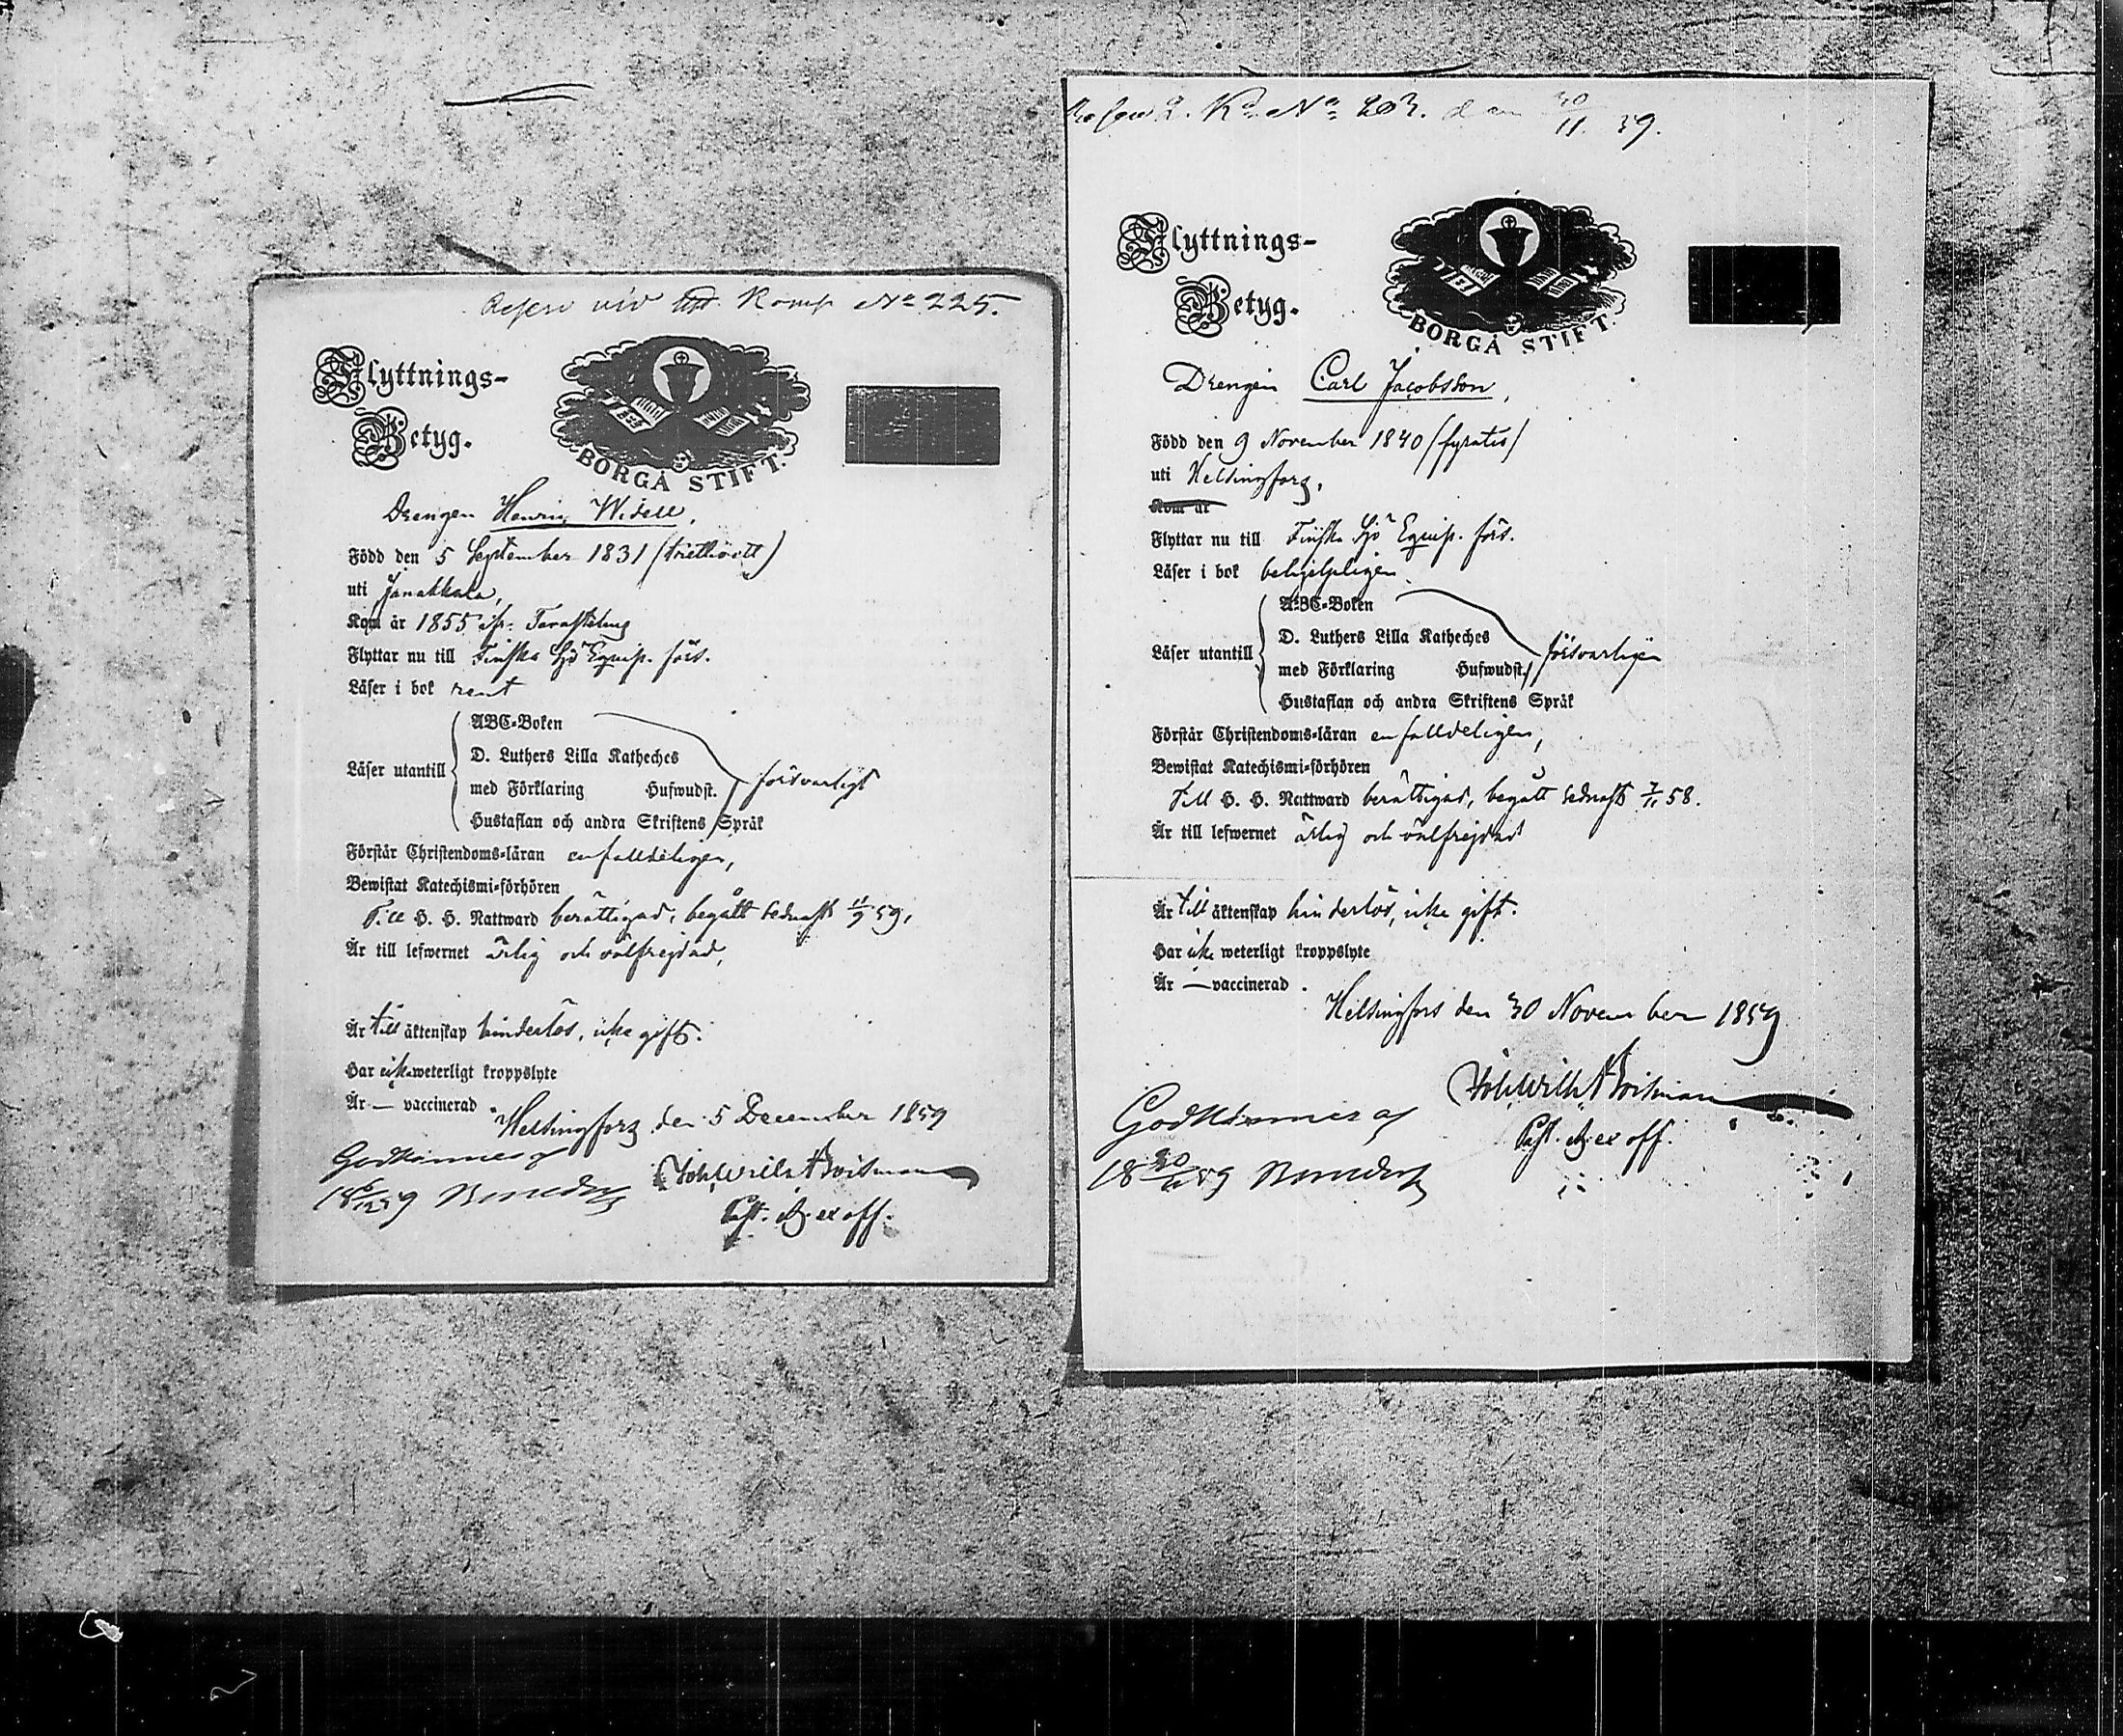 vid Komp No 225.
Flyttnings-
Betyg.
BORGÅ STIFT.
Drengen Henric Widell,
Född den 5 September 1831 (triettioett)
uti Janakkala,
Kom år 1855 ifr. Tavastehus
Flyttar nu till Finska Sjö Equip. förs.
Läser i bok rent
ABC-Boken
D. Luthers Lilla Katheches
Läser utantill
med Förklaring Hufwudst. försvarligt
Hustaflan och andra Skriftens Språk
Förstår Christendoms-läran enfalldeligen,
Bewistat Katechismi-förhören
Till H. H. Nattward berättigad, begått sednast 11/9 59,
Är till lefwernet ärlig och välfrejdad,
Är till äktenskap hinderlös, icke gift.
Har icke weterligt kroppslyte
Är — vaccinerad.
Helsingfors den 5 December 1859
Godkännes af
18 6/12 59
Past. Adj. ex off.
No 203. den 30/11. 59.
Flyttnings-
Betyg.
BORGÅ STIFT.
Drengen Carl Jacobsson,
Född den 9 November 1840 (fyratio)
uti Helsingfors,
Kom år
Flyttar nu till Finska Sjö Equip. förs.
Läser i bok behjelpligen
ABC-Boken
D. Luthers Lilla Katheches
Läser utantill försvarligen
med Förklaring Hufwudst.
Hustaflan och andra Skriftens Språk
Förstår Christendoms-läran enfalldeligen,
Bewistat Katechismi-förhören
Till H. H. Nattward berättigad, begått sednast 7/11 58.
Är till lefwernet ärlig och välfrejdad
Är till äktenskap hinderlös, icke gift.
Har icke weterligt kroppslyte
Är — vaccinerad.
Helsingfors den 30 November 1859
Godkännes af
18 30/11 59
Past. Adj. ex off.